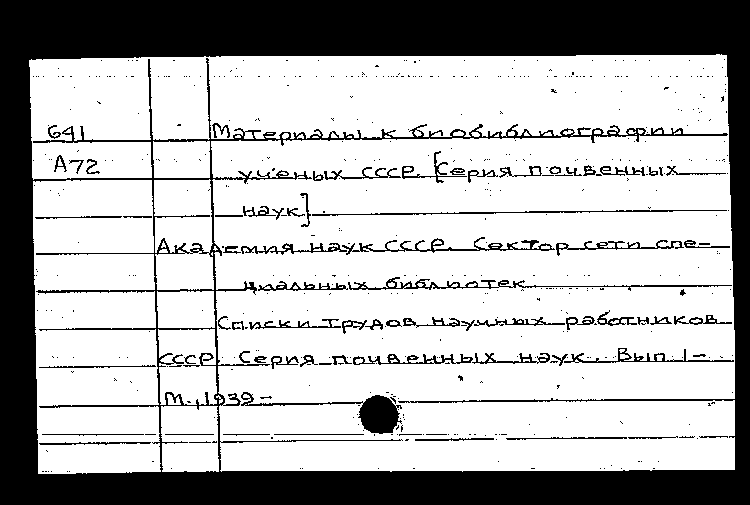 641 Материалы к биобиблиографии
A72 ученых СССР. [Серия почвенных
наук].
Академия наук СССР. Сектор сети спе-
циальных библиотек
Списки трудов научных работников
СССР. Серия почвенных наук. Вып 1-
М., 1939-